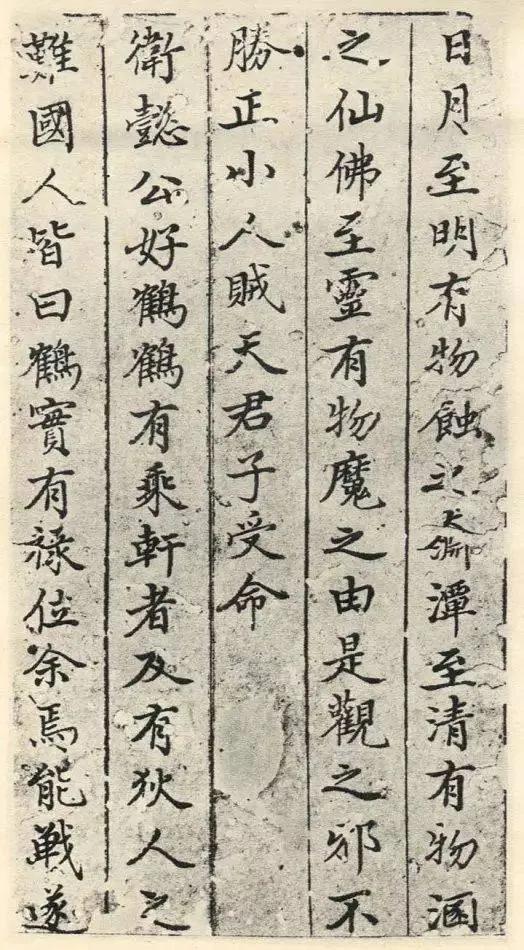 日月至明有物蝕之潭至清有物涵
之仙佛至靈有物魔之由是觀之邪不
勝正小人賊天君子受命
衛懿公好鶴鶴有乘軒者及有狄人之
難國人皆曰鶴實有祿位余焉能戰遂